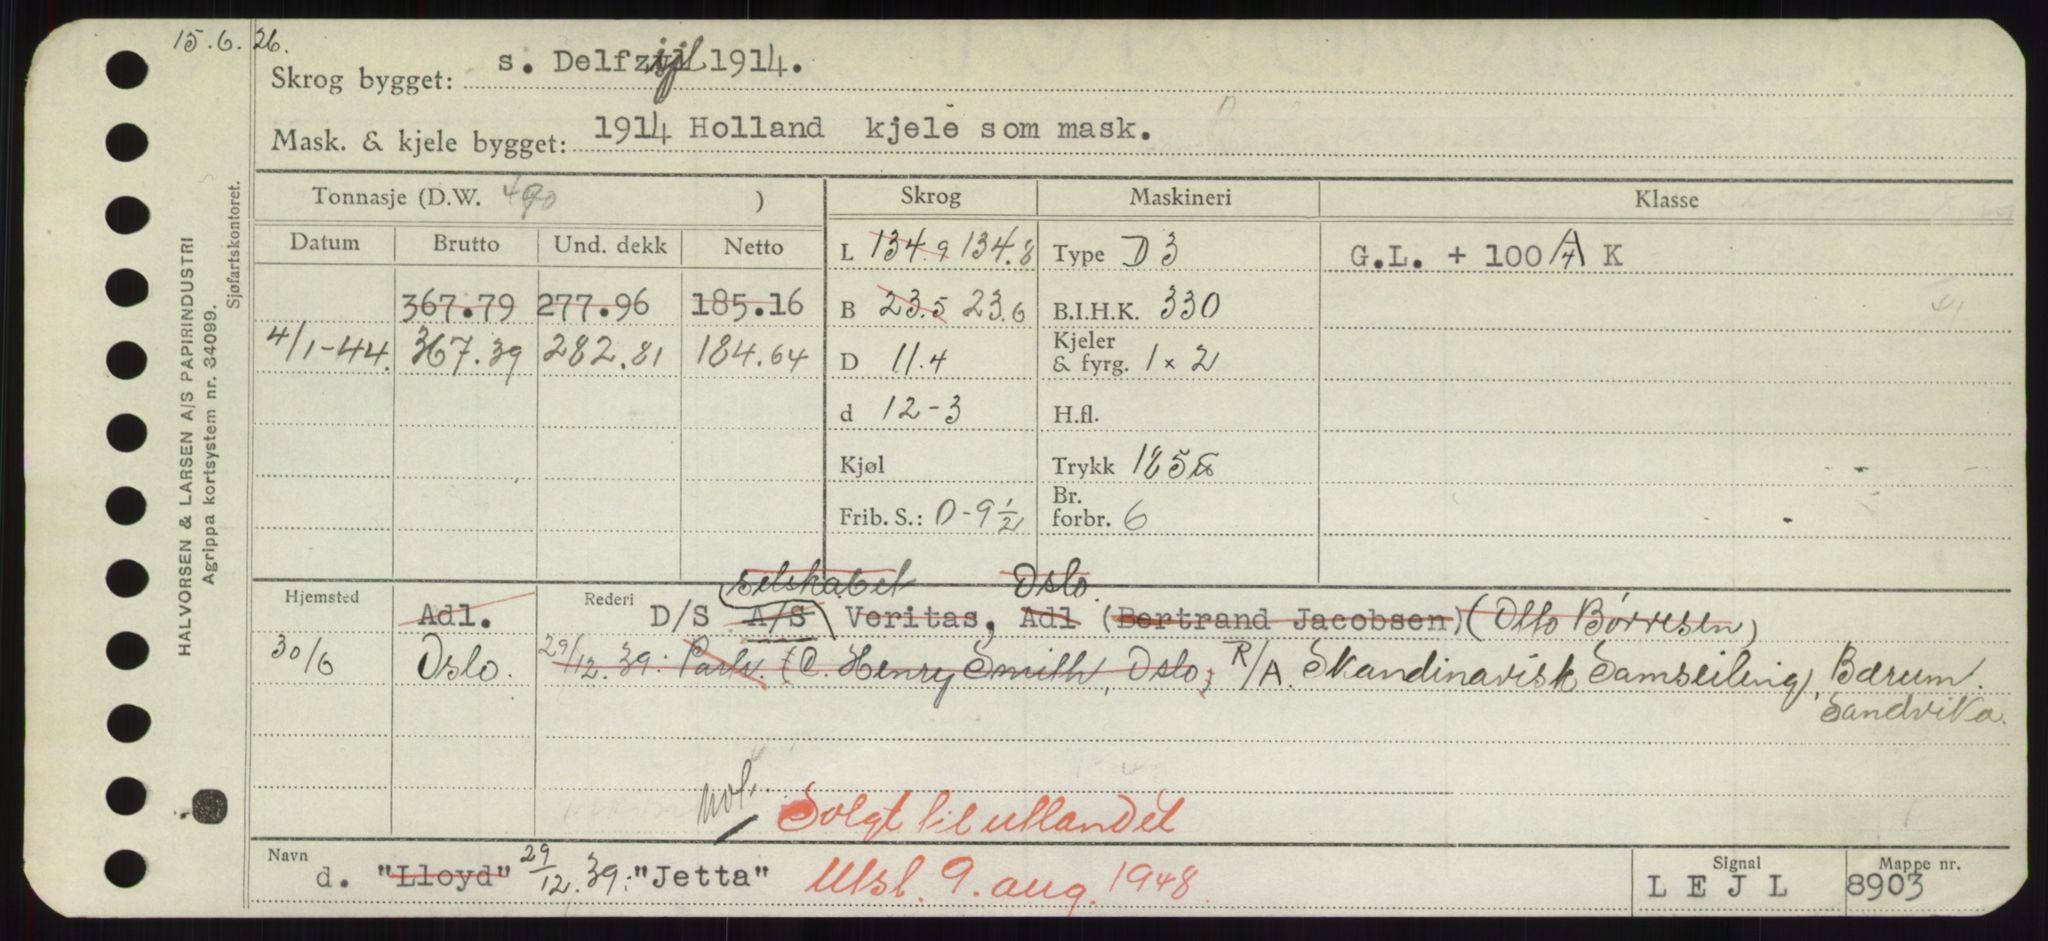 15.6.26.
Skrog bygget: s. Delfzijl 1914.
Mask. & kjele bygget: 1914 Holland kjele som mask.
HALVORSEN & LARSEN A/S PAPIRINDUSTRI
Agrippa kortsystem nr. 34099.
Sjøfartskontoret.
Tonnasje (D.W. 490 ) Skrog Maskineri Klasse
Datum Brutto Und. dekk Netto
L 134.9 134.8 Type D 3 G.L. + 100 A/4 K
367.79 277.96 185.16 B 23.5 23.6 B.I.H.K. 330
4/1-44. 367.39 282.81 184.64 D 11.4 Kjeler & fyrg. 1 x 2
d 12-3 H.fl.
Kjøl Trykk 185
Frib. S.: 0-9 1/2 Br. forbr. 6
selskabet Oslo.
Hjemsted Adl. Rederi D/S A/S Veritas, Adl (Bertrand Jacobsen) (Otto Børresen)
30/6 Oslo. 29/12.39: Partr. (C. Henry Smith, Oslo) R/A. Skandinavisk Samseiling, Bærum.
Sandvika.
Solgt til utlandet
Navn d. "Lloyd" 29/12.39: "Jetta" Utsl. 9. aug. 1948. Signal L E J L Mappe nr. 8903